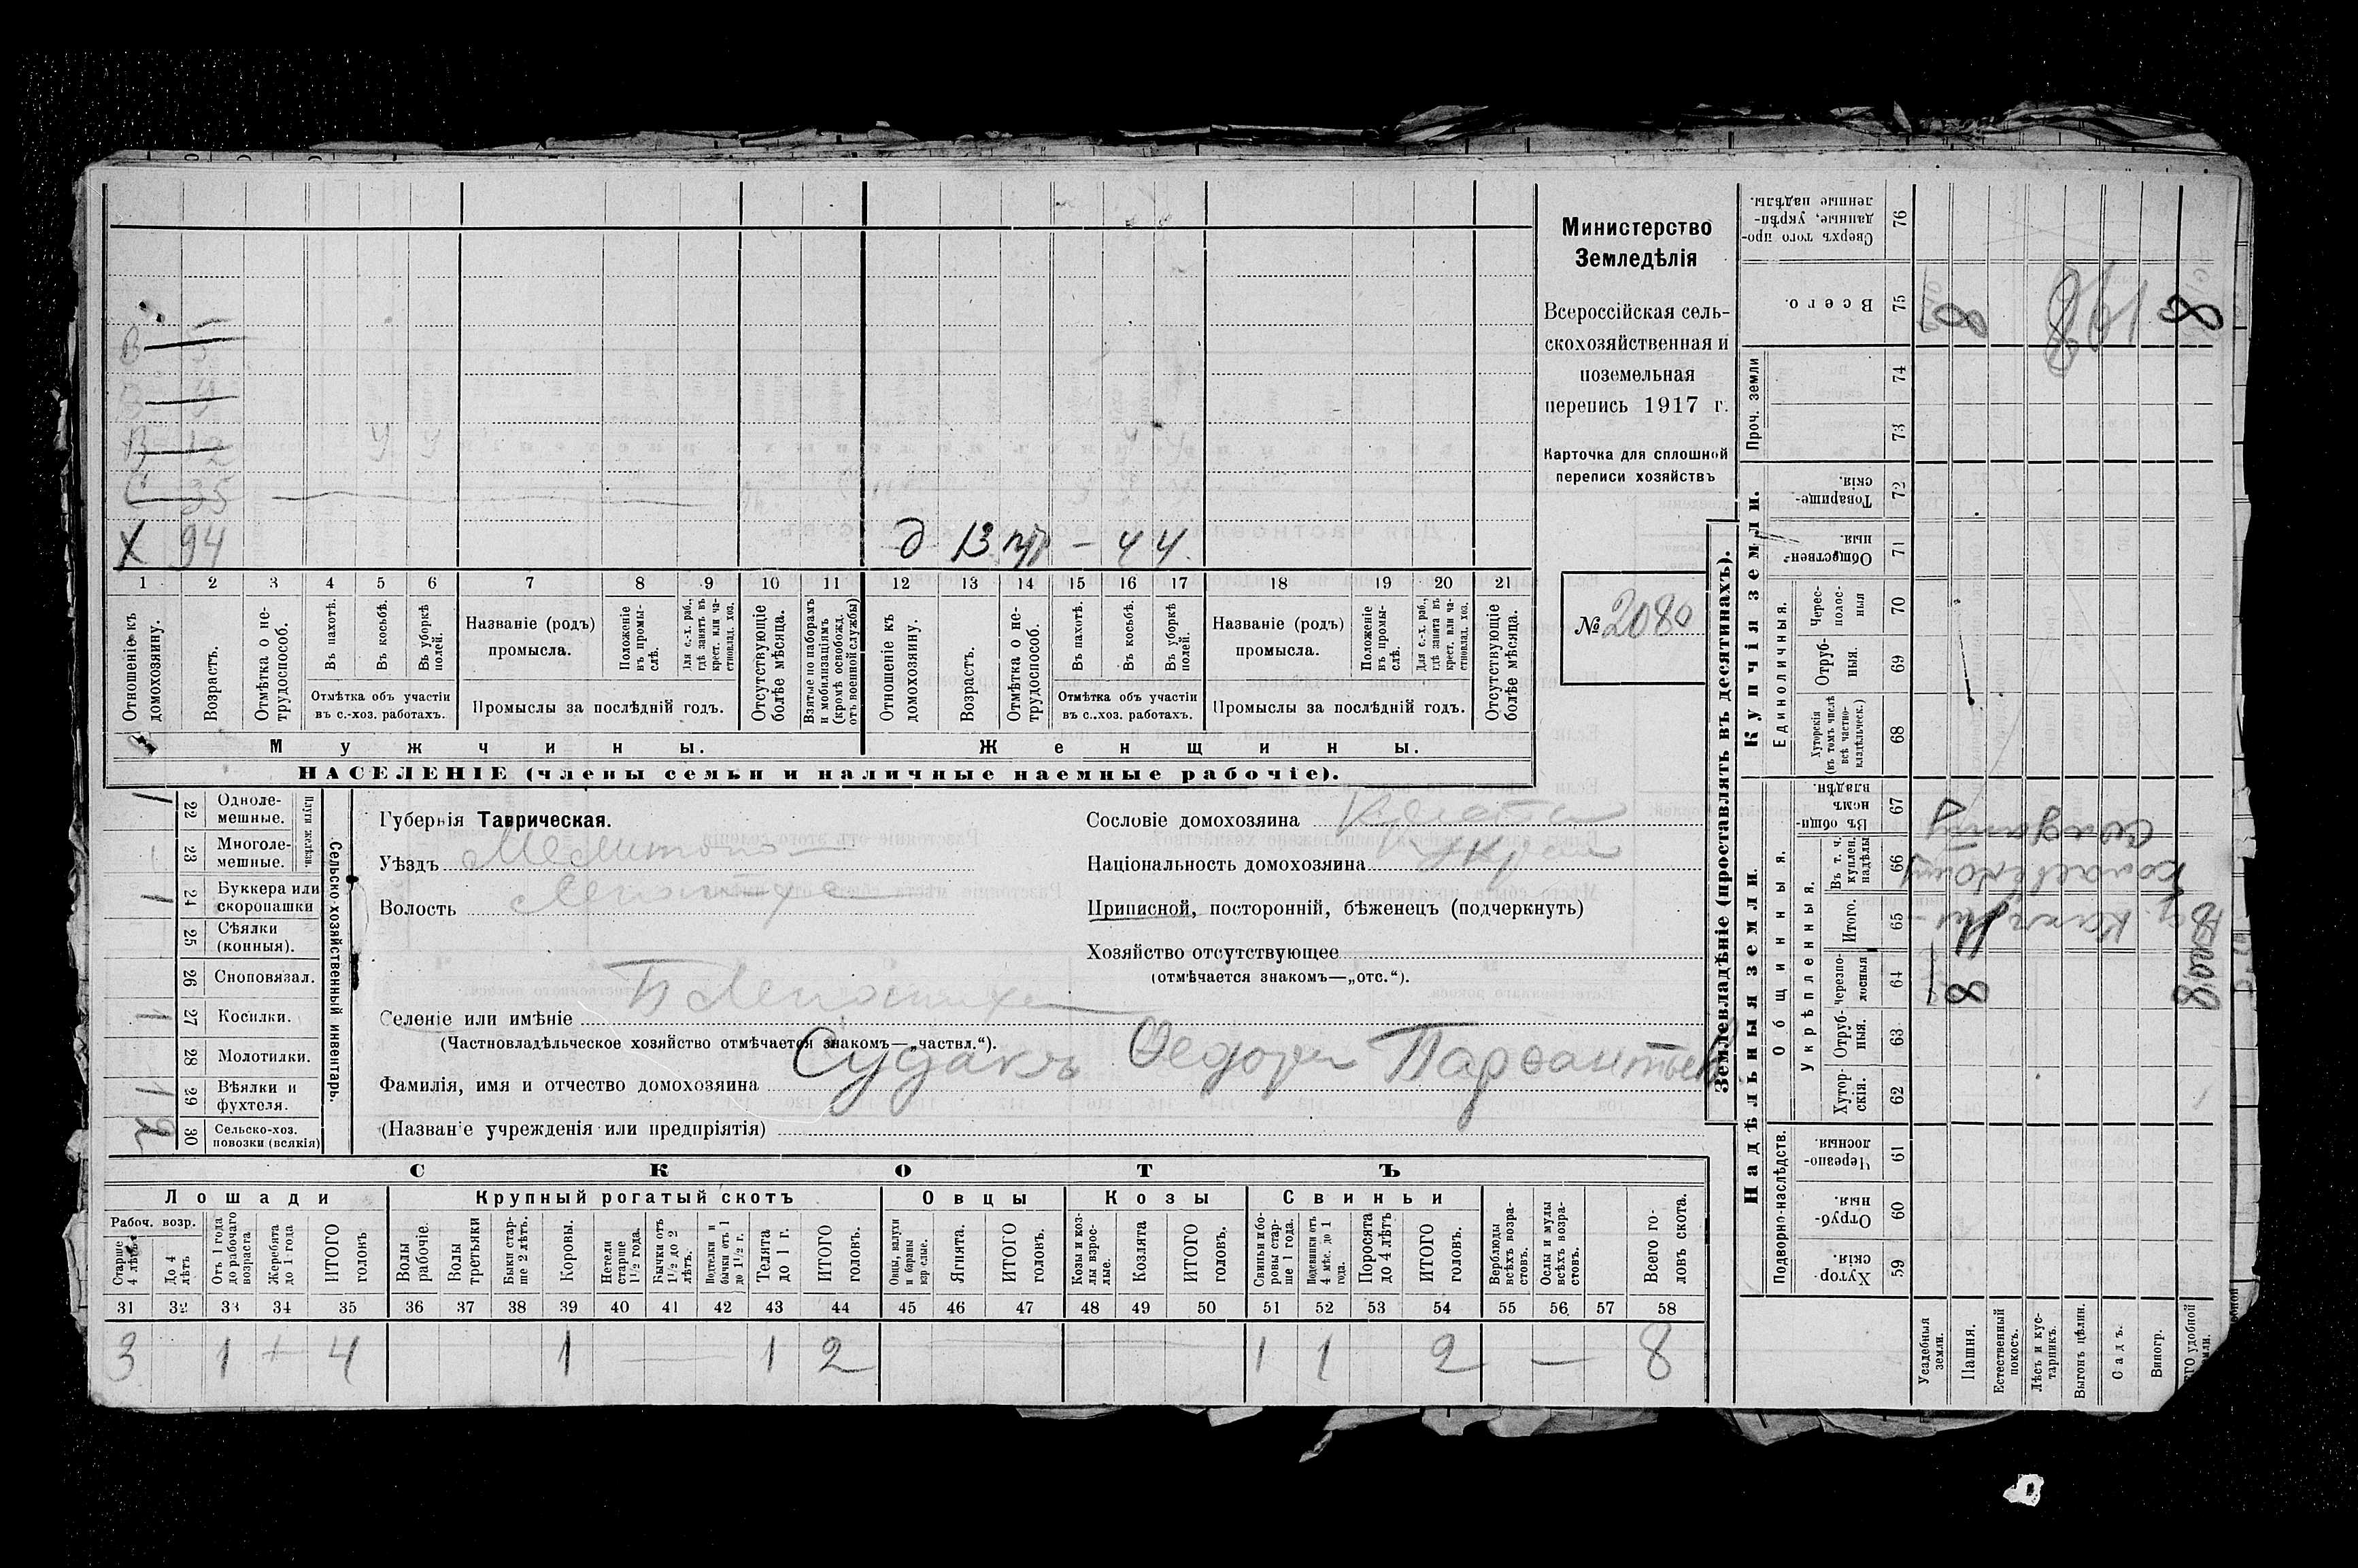 В 5
В 9
В 12 у у
С 35
Х 94
д 13 – 4 4
1 2 3 4 5 6 7 8 9 10 11 12 13 14 15 16 17 18 19 20 21
Отношеніе къ домохозяину.
Возрастъ.
Отмѣтка о нетрудоспособ.
Въ пахотѣ.
Въ косьбѣ.
Въ уборкѣ полей.
Отмѣтка объ участіи
въ с.-хоз. работахъ.
Названіе (родъ)
промысла.
Положеніе въ промыслѣ.
Для с.-х. раб., гдѣ занятъ въ крест. или частновлад. хоз.
Промыслы за послѣдній годъ.
Отсутствующіе болѣе мѣсяца.
Взятые по наборамъ и мобилизаціямъ (кромѣ освобожд. отъ военной службы)
Отношеніе къ домохозяину.
Возрастъ.
Отмѣтка о нетрудоспособ.
Въ пахотѣ.
Въ косьбѣ.
Въ уборкѣ полей.
Отмѣтка объ участіи
въ с.-хоз. работахъ.
Названіе (родъ)
промысла.
Положеніе въ промыслѣ.
Для с.-х. раб., гдѣ занята въ крест. или частновлад. хоз.
Промыслы за послѣдній годъ.
Отсутствующіе болѣе мѣсяца.
Мужчины.
Женщины.
НАСЕЛЕНІЕ (члены семьи и наличные наемные рабочіе).
Министерство
Земледѣлія
Всероссійская сель-
скохозяйственная и
поземельная
перепись 1917 г.
Карточка для сплошной
переписи хозяйствъ
№ 2080
Сельско-хозяйственный инвентарь.
Плуги желѣзн.
22 Одноле-
мешные. 1
23 Многоле-
мешные.
24 Буккера или
скоропашки 1
25 Сѣялки
(конныя).
26 Сноповязал.
27 Косилки. 1
28 Молотилки.
29 Вѣялки и
фухтеля. 1
30 Сельско-хоз.
повозки (всякія) 2
Губернія Таврическая.
Уѣздъ Мелитопо
Волость Лепатихс
Сословіе домохозяина
Національность домохозяина укр
Приписной, посторонній, бѣженецъ (подчеркнуть)
Хозяйство отсутствующее
(отмѣчается знакомъ—„отс.“).
Селеніе или имѣніе Б Лепатиха
(Частновладѣльческое хозяйство отмѣчается знакомъ—„частвл.“).
Фамилія, имя и отчество домохозяина Судакъ Федоръ Парфантьев
(Названіе учрежденія или предпріятія)
СКОТЪ
Лошади
Крупный рогатый скотъ
Овцы
Козы
Свиньи
Рабоч. возр.
Старше 4 лѣтъ
До 4 лѣтъ
Отъ 1 года до рабочаго возраста
Жеребята до 1 года
ИТОГО головъ
Волы рабочіе.
Волы третьяки
Быки старше 2 лѣтъ.
Коровы.
Нетели старше 1½ года.
Бычки отъ 1½ до 2 лѣтъ.
Подтелки и бычки отъ 1 до 1½ г.
Телята до 1 г.
ИТОГО головъ.
Овцы, валухи и бараны взрослые.
Ягнята.
ИТОГО головъ.
Козы и козлы взрослые.
Козлята
ИТОГО головъ.
Свиньи боровы старше 1 года.
Подсвинки отъ 4 мѣс. до 1 года.
Поросята до 4 лѣтъ
ИТОГО головъ.
Верблюды всѣхъ возрастовъ.
Ослы и мулы всѣхъ возрастовъ.
Всего головъ скота.
31 32 33 34 35 36 37 38 39 40 41 42 43 44 45 46 47 48 49 50 51 52 53 54 55 56 57 58
3 1 + 4 1 — 1 2 1 1 2 — 8
Землевладѣніе (проставлять въ десятинахъ).
Надѣльныя земли.
Купчія земли.
Проч. земли
Подворно-наслѣдств.
Общинныя.
Укрѣпленныя.
Единоличныя.
Хуторскія. 59
Отрубныя. 60
Черезполосныя. 61
Хуторскія. 62
Отрубныя. 63
Черезполосныя 64
Итого. 65
Въ т. ч. куплен. надѣлы 66
Въ общинномъ владѣн. 67
Хуторскія (въ томъ числѣ всѣ частновладѣльческ.) 68
Отрубныя. 69
Чересполосныя 70
Общественныя. 71
Товарищескія. 72
73
74
Всего. 75
Сверхъ того проданные, укрѣпленные надѣлы. 76
Усадебныя земли.
Пашня. 8 8
Естественный покосъ.
Лѣсъ и кустарникъ.
Выгонъ цѣлин.
Садъ.
Виногр.
8 8